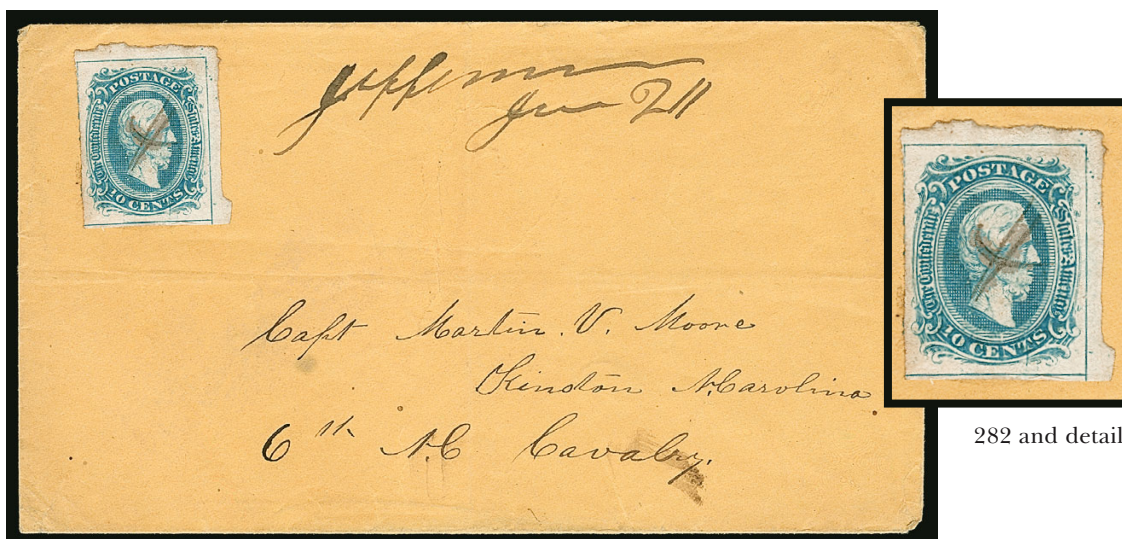 POSTAGE
The Confederate States of America
10 CENTS
Jefferson
Jun 211
Capt Martin. V. Moore
Kinston N.Carolina
6th N.C Cavalry.
POSTAGE
The Confederate States of America
10 CENTS
282 and detail